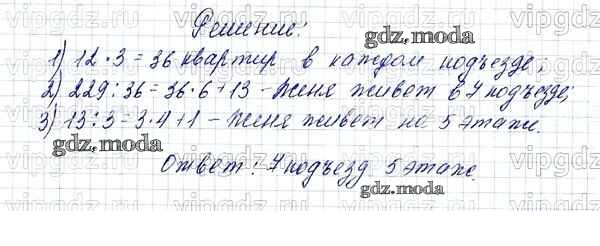 Решение:
1) 12 · 3 = 36 квартир в каждом подъезде;
2) 229 : 36 = 36 · 6 + 13 - Женя живет в 7 подъезде;
3) 13 : 3 = 3 · 4 + 1 - Женя живет на 5 этаже.
Ответ: 7 подъезд, 5 этаж.
gdz.moda
gdz.moda
gdz.moda
vipgdz
vipgdz
vipgdz
vipgdz